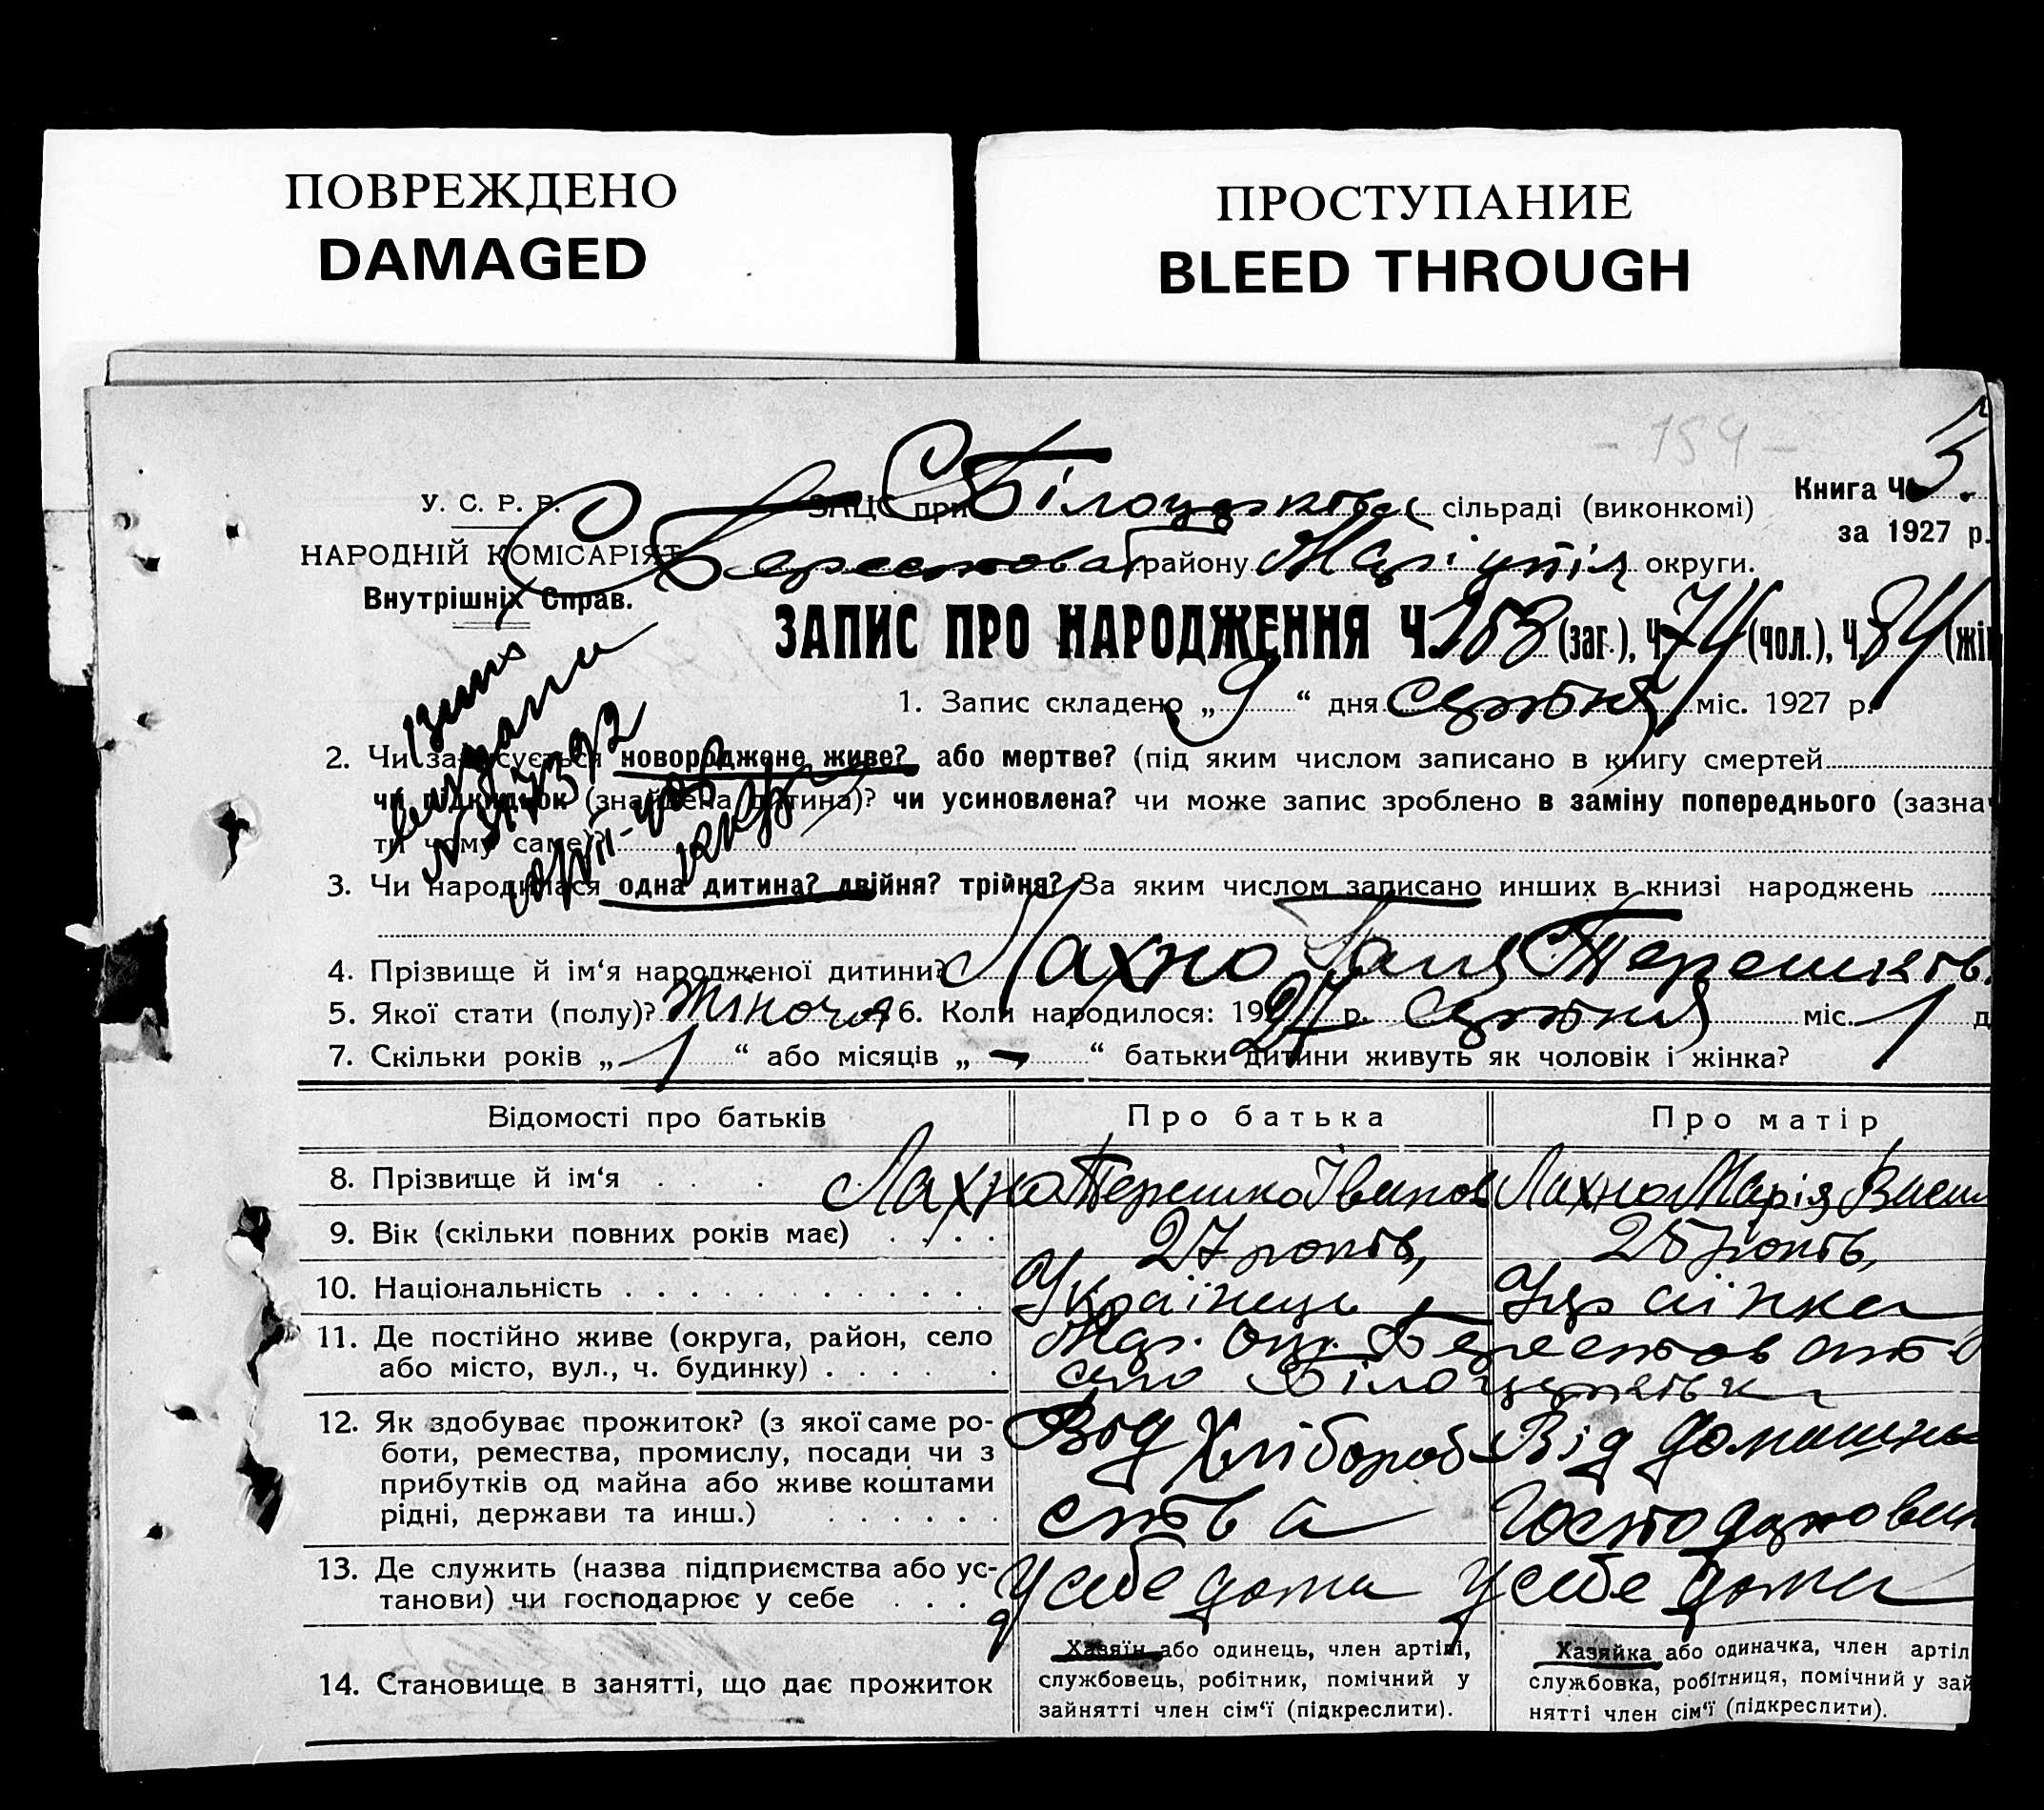 ПОВРЕЖДЕНО
DAMAGED
ПРОСТУПАНИЕ
BLEED THROUGH
- 154 -
Книга Ч. 3.
за 1927 р.
У. С. Р. Р.
НАРОДНІЙ КОМІСАРІЯТ
Внутрішніх Справ.
ЗАЦС при Білоцерківс сільраді (виконкомі)
Берестова району Маріупіл округи.
ЗАПИС ПРО НАРОДЖЕННЯ Ч. 158 (заг.), Ч. 74 (чол.), Ч. 84 (жін
1. Запис складено „ 9 “ дня серпня міс. 1927 р.
2. Чи записується новороджене живе? або мертве? (під яким числом записано в книгу смертей
чи підкидьок (знайдена дитина)? чи усиновлена? чи може запис зроблено в заміну попереднього (зазна
ти чому саме)?
3. Чи народилася одна дитина? двійня? трійня? За яким числом записано инших в книзі народжень
4. Прізвище й ім‘я народженої дитини? Лахно Галя Терешків.
5. Якої стати (полу)? Жіноча 6. Коли народилося: 1927 р. серпня міс. 1 д
7. Скільки років „ 1 “ або місяців „ - “ батьки дитини живуть як чоловік і жінка?
Відомості про батьків Про батька Про матір
8. Прізвище й ім‘я . . . . Лахно Терешко Іванов Лахно Марія Васи
9. Вік (скільки повних років має) . . . . 27 років, 25 років,
10. Національність . . . . . . . . . . . . Українець Українка
11. Де постійно живе (округа, район, село Мар. окр. Берестов
або місто, вул., ч. будинку) . . . . . село Білоцерківка
12. Як здобуває прожиток? (з якої саме ро- Від Хлібороб Від домашнь
боти, ремества, промислу, посади чи з
прибутків од майна або живе коштами
рідні, держави та инш.) . . . . . . ства Господарювання
13. Де служить (назва підприємства або ус- У себе дома У себе дома
танови) чи господарює у себе . . .
14. Становище в занятті, що дає прожиток
Хазяїн або одинець, член артілі,
службовець, робітник, помічний у
зайнятті член сім‘ї (підкреслити).
Хазяйка або одиначка, член артіл
службовка, робітниця, помічний у зай
нятті член сім‘ї (підкреслити).